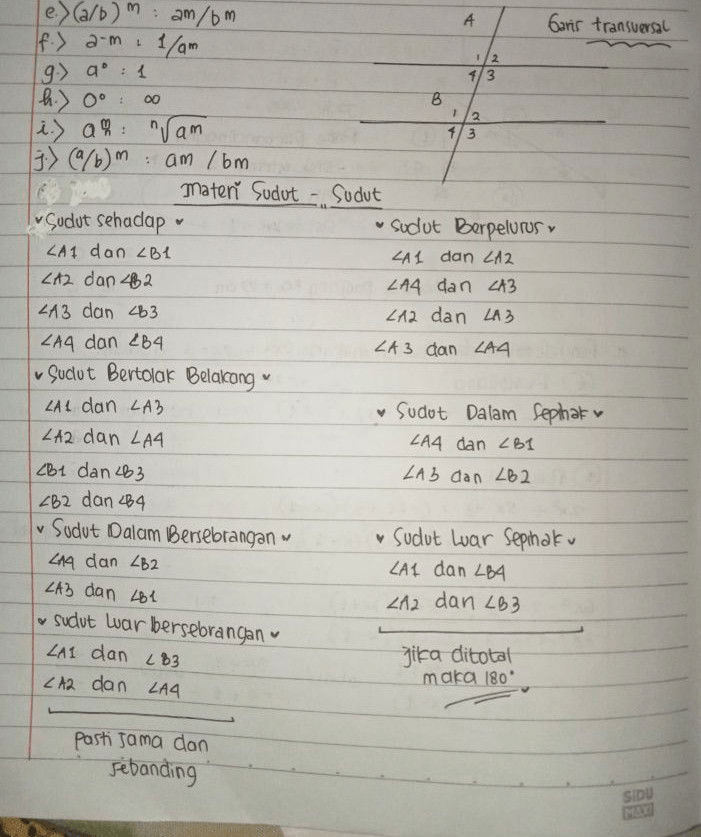 e.> (a/b) m : am/bm
f.> a-m : 1/am
g.> a° : 1
h.> 0° : ∞
i.> a m/n : n√am
j.> (a/b) m : am / bm
A
Garis transversal
1 2
4 3
B
1 2
4 3
Materi Sudut - Sudut
Sudut sehadap
∠A1 dan ∠B1
∠A2 dan ∠B2
∠A3 dan ∠B3
∠A4 dan ∠B4
Sudut Bertolak Belakang
∠A1 dan ∠A3
∠A2 dan ∠A4
∠B1 dan ∠B3
∠B2 dan ∠B4
Sudut Dalam Bersebrangan
∠A4 dan ∠B2
∠A3 dan ∠B1
sudut luar bersebrangan
∠A1 dan ∠B3
∠A2 dan ∠A4
pasti sama dan
sebanding
Sudut Berpelurus
∠A1 dan ∠A2
∠A4 dan ∠A3
∠A2 dan ∠A3
∠A3 dan ∠A4
Sudut Dalam Sepihak
∠A4 dan ∠B1
∠A3 dan ∠B2
Sudut luar Sepihak
∠A1 dan ∠B4
∠A2 dan ∠B3
jika ditotal
maka 180°
SiDU
MAXI